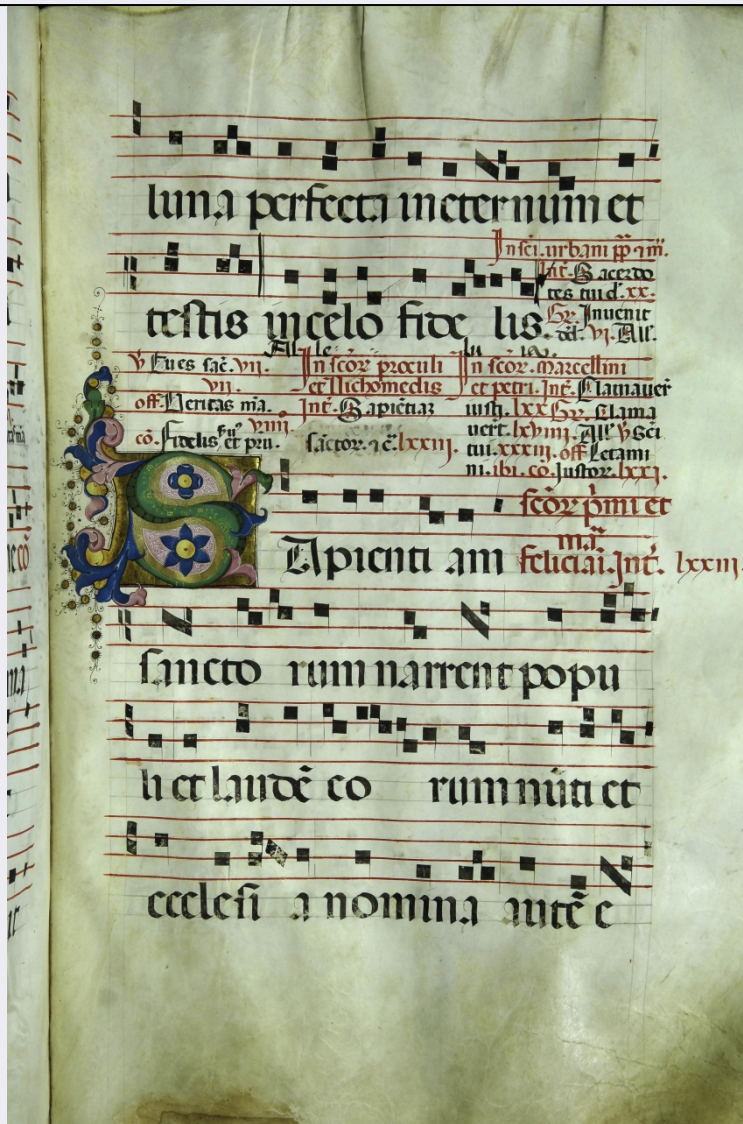 luna perfecta in eternum et
In sci. urbani pp ⁊ m̃.
Int. Sacerdo
tes tui d. xx.
testis in celo fide lis.
Gr. Inuenit
del. vi. All.
Al le lu ia.
℣ Tu es sac̃. vii.
vii.
off. Ueritas m̃a.
viiii.
cō. Fidelis ser̃. et pru.
In scōꝝ proculi
et Nichomedis
Int. Sapiẽtiaz
sãctor. ⁊ c̃. lxxiii.
In scōꝝ. marcellini
et petri. Int. Clamauer̃
iusti. lxx Gr. Clama
uert. lxviiii. All. ℣ Sci
tui. xxxiii. off Letami
ni. ibi. co. Justoꝝ. lxxi.
scōꝝ p̃mi et
SApienti am
feliciãi. Int̃. lxxiii.
sancto rum narrent popu
li et laudẽ eo rum nũti et
ecclesi a nomina autẽ e